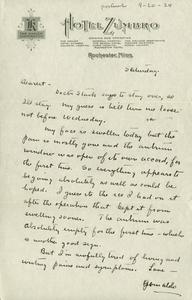 postmark 9-20-24
HOTEL ZUMBRO
Rochester, Minn.
Saturday.
Dearest -
Doctor Stark says to stay over, so
I'll stay. My guess is he'll turn me loose
not before Wednesday.
My face is swollen today but the
pain is mostly gone and the antrum
window was open of its own accord, for
the first time. So everything appears to
be going absolutely as well as could be
hoped. I guess its the ice I had on it
after the operation that kept it from
swelling sooner. The antrum was
absolutely empty for the first time - which
is another good sign.
But I'm awfully tired of living and
writing pains and symptoms. Love -